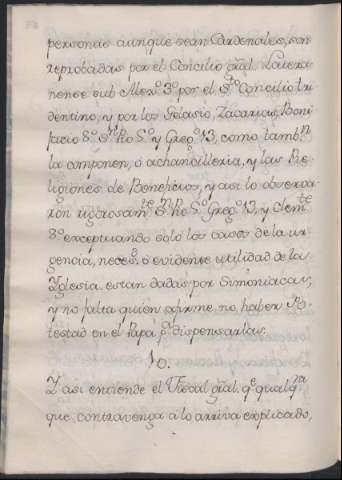 personas aunque sean Cardenales, son
reprobadas por el Concilio gral. Latera-
nense sub Alex.º 3.º por el S.to Concilio tri
dentino, y por los Gelasio, Zacarias, Boni
facio 8.º S.n Pio 5.º y Greg.º 13, como tamb.n
la componen, ó achancilleria, y las Re-
ligiones de Beneficios, y asi lo observa-
ron rigorosam.te S.n Pio 5.º Greg.º 13, y Clem.te
8.º exceptuando solo los casos de la ur-
gencia, neces.º ó evidente utilidad de la
Yglesia. estan dadas por Simoniacas,
y no falta quien afirme no haber Po-
testad en el Papa p.a dispensarlas.
10.
Y asi entiende el Fiscal gral. q.e qualq.ra
que, contravenga a lo arriva explicado,